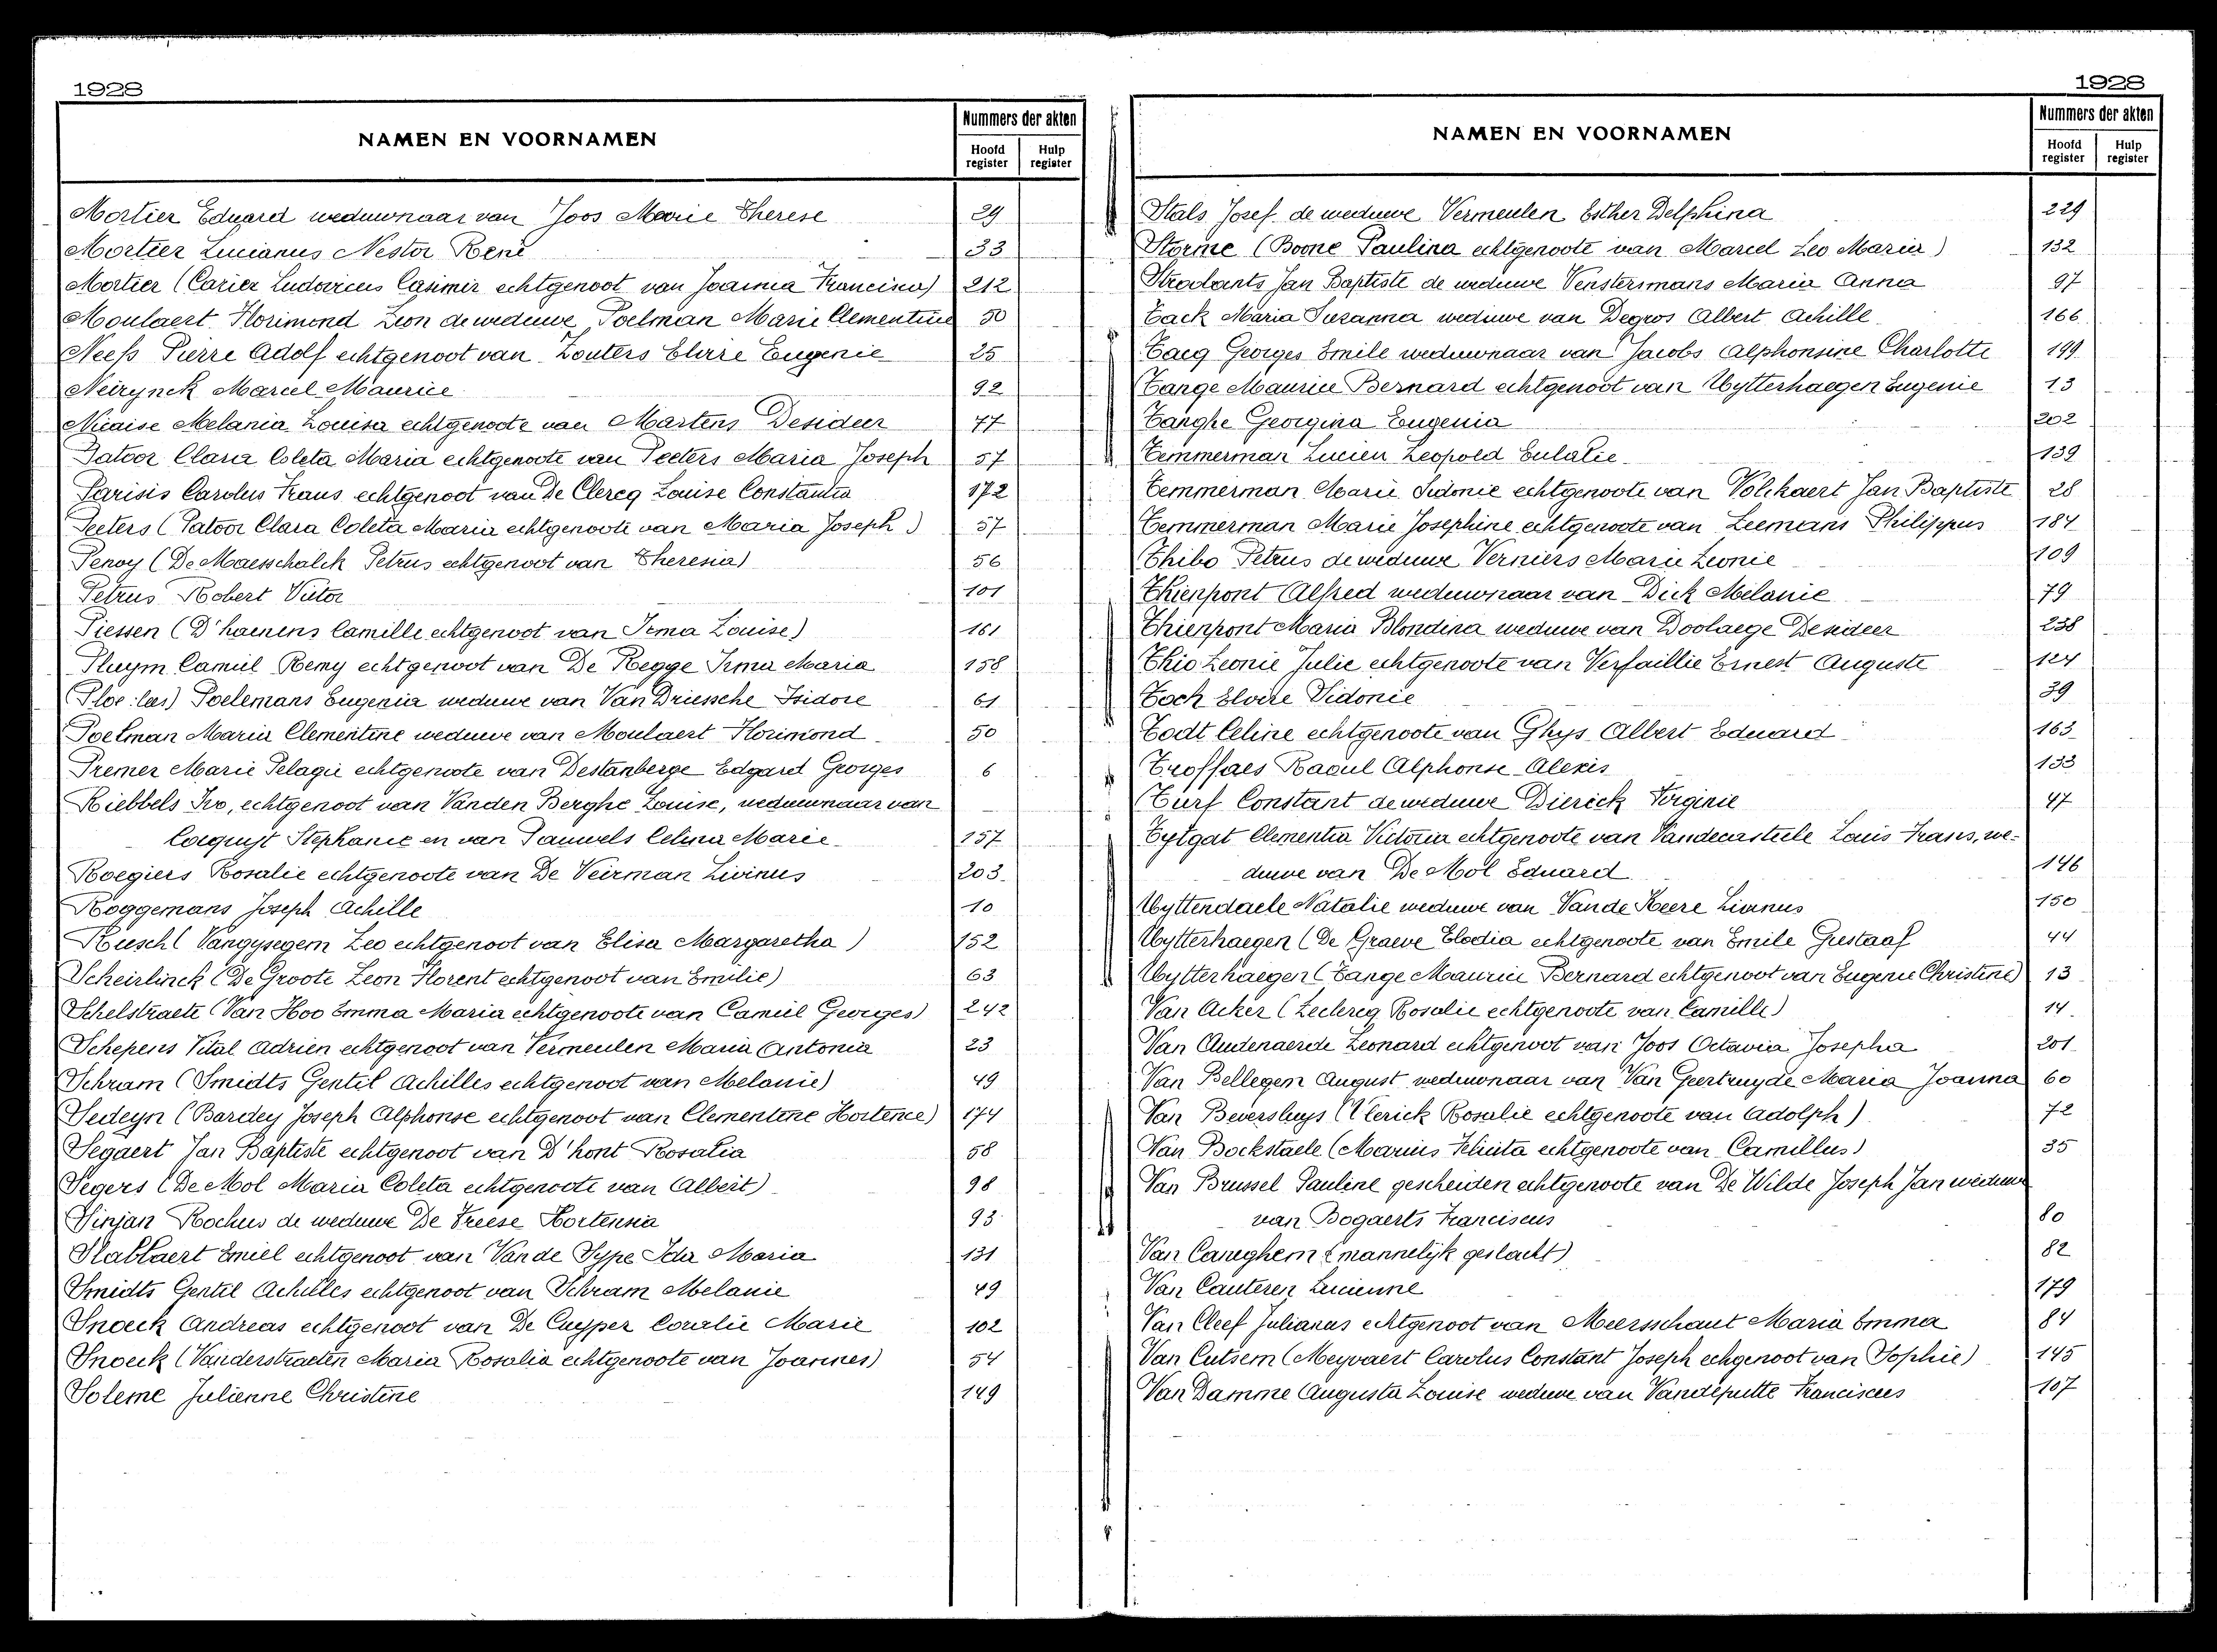 1928
NAMEN EN VOORNAMEN
Nummers der akten
Hoofd register
Hulp register
Mortier Eduard weduwnaar van Joos Marie Therese 29
Mortier Lucianus Nestor René 33
Mortier (Carier Ludovicus Casimir echtgenoot van Joanna Francisca) 212
Moulaert Florimond Leon de weduwe Poelman Marie Clementine 50
Neefs Pierre Adolf echtgenoot van Zouters Elvire Eugenie 25
Neirynck Marcel Maurice 92
Nicaise Melania Louisa echtgenoote van Martens Desideer 77
Patoor Clara Coleta Maria echtgenoote van Peeters Maria Joseph 57
Parisis Carolus Frans echtgenoot van De Clercq Louise Constantia 172
Peeters (Patoor Clara Coleta Maria echtgenoote van Maria Joseph) 57
Penoy (De Maesschalck Petrus echtgenoot van Theresia) 56
Petrus Robert Victor 101
Piessen (D'haenens Camille echtgenoot van Irma Louise) 161
Pluym Camiel Remy echtgenoot van De Regge Irma Maria 158
(Ploe: lees) Poelemans Eugenia weduwe van Van Driessche Isidore 61
Poelman Maria Clementine weduwe van Moulaert Florimond 50
Premer Marie Pelagie echtgenoote van Destanberge Edgard Georges 6
Riebbels Ivo, echtgenoot van Vanden Berghe Louise, weduwnaar van
Cocquyt Stephanie en van Pauwels Celina Marie 157
Roegiers Rosalie echtgenoote van De Veirman Livinus 203
Roggemans Joseph Achille 10
Rusch (Vangysegem Leo echtgenoot van Elisa Margaretha) 152
Scheirlinck (De Groote Leon Florent echtgenoot van Emilie) 63
Schelstraete (Van Hoo Emma Maria echtgenoote van Camiel Georges) 242
Schepens Vital Adrien echtgenoot van Vermeulen Maria Antonia 23
Schram (Smidts Gentil Achilles echtgenoot van Melanie) 49
Sedeyn (Bardey Joseph Alphonse echtgenoot van Clementine Hortence) 174
Segaert Jan Baptiste echtgenoot van D'hont Rosalia 58
Segers (De Mol Maria Coleta echtgenoote van Albert) 98
Sinjan Rochus de weduwe De Vreese Hortensia 93
Slabbaert Emiel echtgenoot van Van de Sype Ida Maria 131
Smidts Gentil Achilles echtgenoot van Schram Melanie 49
Snoeck Andreas echtgenoot van De Cuyper Coralie Marie 102
Snoeck (Vanderstraeten Maria Rosalia echtgenoote van Joannes) 54
Soleme Julienne Christine 149
1928
NAMEN EN VOORNAMEN
Nummers der akten
Hoofd register
Hulp register
Stals Josef de weduwe Vermeulen Esther Delphina 229
Storme (Boone Paulina echtgenoote van Marcel Leo Maria) 132
Strodants Jan Baptiste de weduwe Venstersmans Maria Anna 97
Tack Maria Suzanna weduwe van Degros Albert Achille 166
Tacq Georges Emile weduwnaar van Jacobs Alphonsine Charlotte 199
Tange Maurice Bernard echtgenoot van Uytterhaegen Eugenie 13
Tanghe Georgina Eugenia 202
Temmerman Lucien Leopold Eulalie 139
Temmerman Marie Sidonie echtgenoote van Volckaert Jan Baptiste 28
Temmerman Marie Josephine echtgenoote van Leemans Philippus 184
Thibo Petrus de weduwe Verniers Marie Leonie 109
Thienpont Alfred weduwnaar van Dick Melanie 79
Thienpont Maria Blondina weduwe van Doolaege Desideer 238
Thio Leonie Julie echtgenoote van Verfaillie Ernest Auguste 124
Toch Elvire Sidonie 39
Todt Celine echtgenoote van Ghys Albert Eduard 163
Troffaes Raoul Alphonse Alexis 133
Turf Constant de weduwe Dierick Virginie 47
Tytgat Clementia Victoria echtgenoote van Vandecasteele Louis Frans, we-
duwe van De Mol Eduard 146
Uyttendaele Natalie weduwe van Van de Keere Livinus 150
Uytterhaegen (De Graeve Elodia echtgenoote van Emile Gustaaf 44
Uytterhaegen (Tange Maurice Bernard echtgenoot van Eugenie Christine) 13
Van Acker (Leclercq Rosalie echtgenoote van Camille) 14
Van Audenaerde Leonard echtgenoot van Joos Octavia Josepha 201
Van Bellegem August weduwnaar van Van Geertruyde Maria Joanna 60
Van Beversluys (Vlerick Rosalie echtgenoote van Adolph) 72
Van Bockstaele (Marius Felicita echtgenoote van Camillus) 35
Van Brussel Pauline gescheiden echtgenoote van De Wilde Joseph Jan weduwe
van Bogaerts Franciscus 80
Van Caneghem (mannelijk geslacht) 82
Van Cauteren Lucienne 179
Van Cleef Julianus echtgenoot van Meersschaut Maria Emma 84
Van Cutsem (Meyvaert Carolus Constant Joseph echgenoot van Sophie) 145
Van Damme Augusta Louise weduwe van Vandeputte Franciscus 107